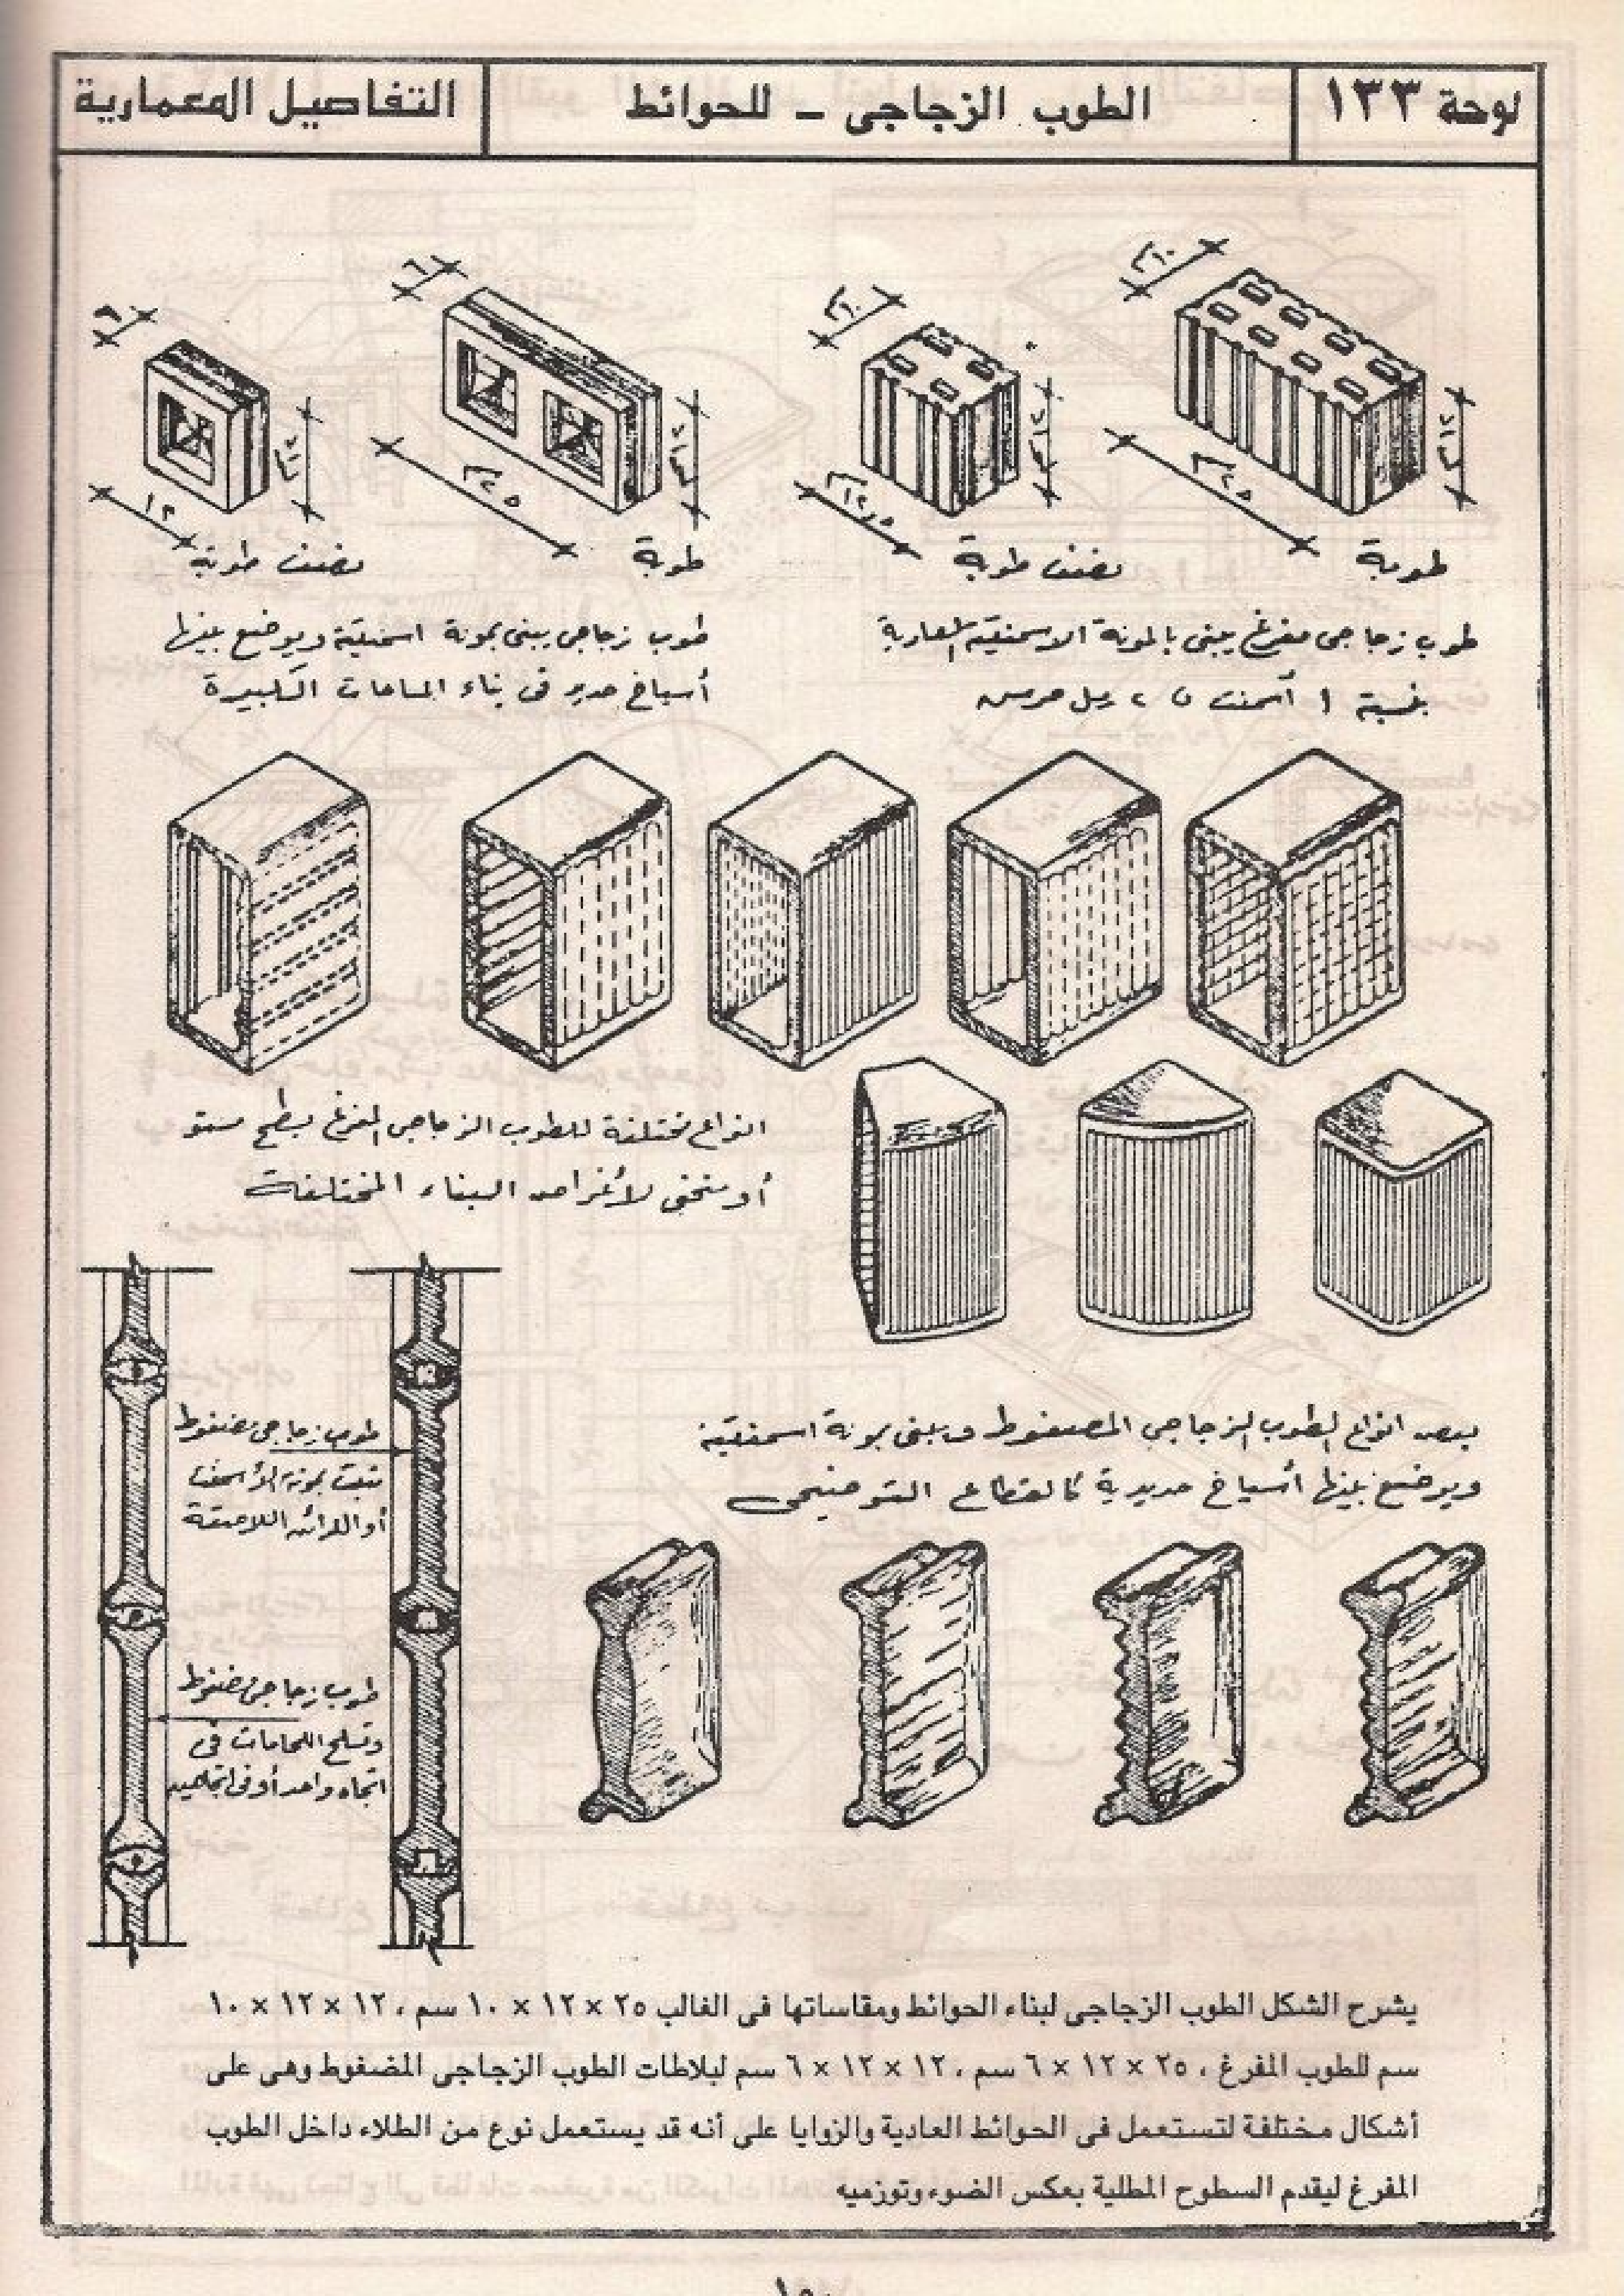 لوحة ١٣٣
الطوب الزجاجى - للحوائط
التفاصيل المعمارية
١٠سم
١٠سم
٦
٦
١٢سم
١٢سم
١٢سم
١٢سم
٢٥سم
١٢,٥سم
٢٥سم
١٢
طوبة
نصف طوبة
طوبة
نصف طوبة
طوب زجاجى مفرغ يبنى بالمونة الاسمنتية العادية
بنسبة ١ أسمنت ، ٢ رمل حرس
طوب زجاجى يبنى بمونة اسمنتية ويوضع بينها
أسياخ حديد فى بناء المساحات الكبيرة
انواع مختلفة للطوب الزجاجى المفرغ بسطح مستو
أو منحنى لأغراض البناء المختلفة
بعض انواع الطوب الزجاجى المضغوط ويبنى بمونة اسمنتية
ويوضع بينها أسياخ حديدية كالقطاع التوضيحى
طوب زجاجى مضغوط
يثبت بمونة الأسمنت
أو اللدائن اللاصقة
طوب زجاجى مضغوط
وتسلح اللحامات فى
اتجاه واحد أو فى اتجاهين
يشرح الشكل الطوب الزجاجى لبناء الحوائط ومقاساتها فى الغالب ٢٥ × ١٢ × ١٠ سم ، ١٢ × ١٢ × ١٠
سم للطوب المفرغ ، ٢٥ × ١٢ × ٦ سم ، ١٢ × ١٢ × ٦ سم لبلاطات الطوب الزجاجى المضغوط وهى على
أشكال مختلفة لتستعمل فى الحوائط العادية والزوايا على أنه قد يستعمل نوع من الطلاء داخل الطوب
المفرغ ليقدم السطوح المطلية بعكس الضوء وتوزميه